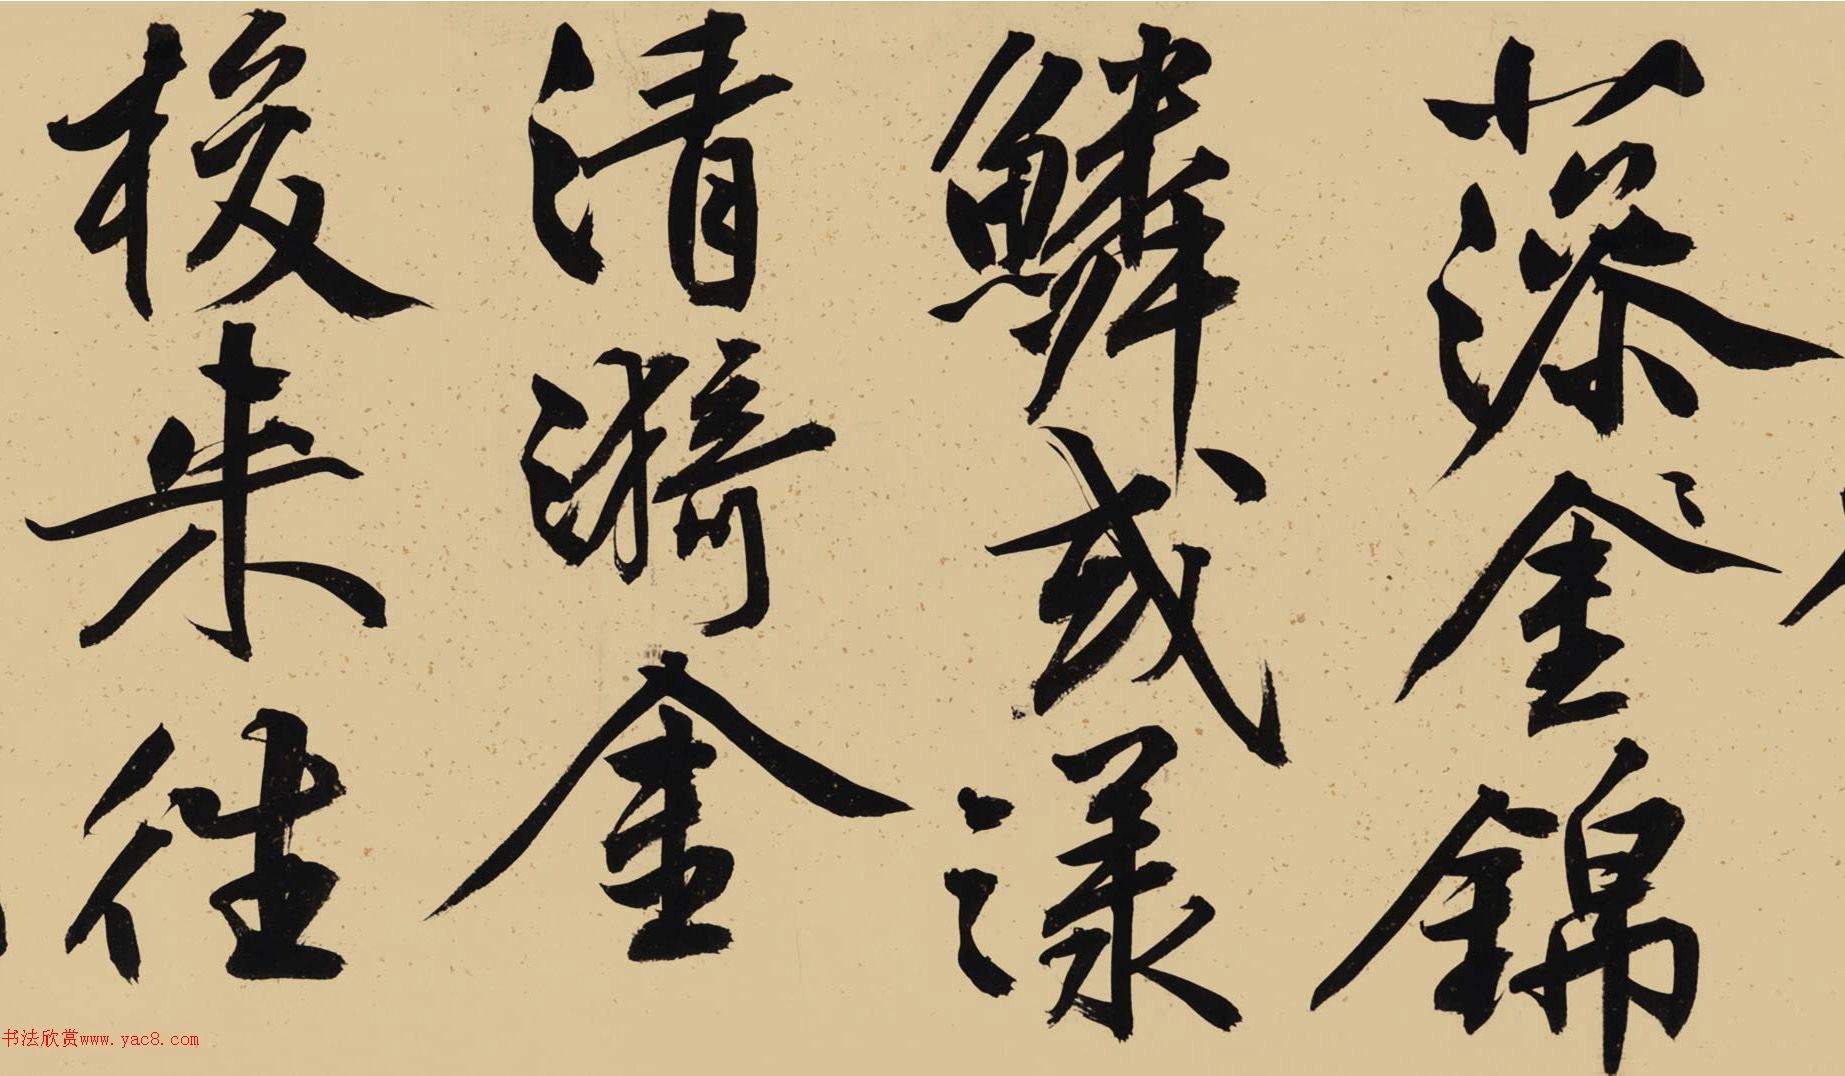 藻金錦
鱗或漾
清漪金
梭来往
书法欣赏www.yac8.com